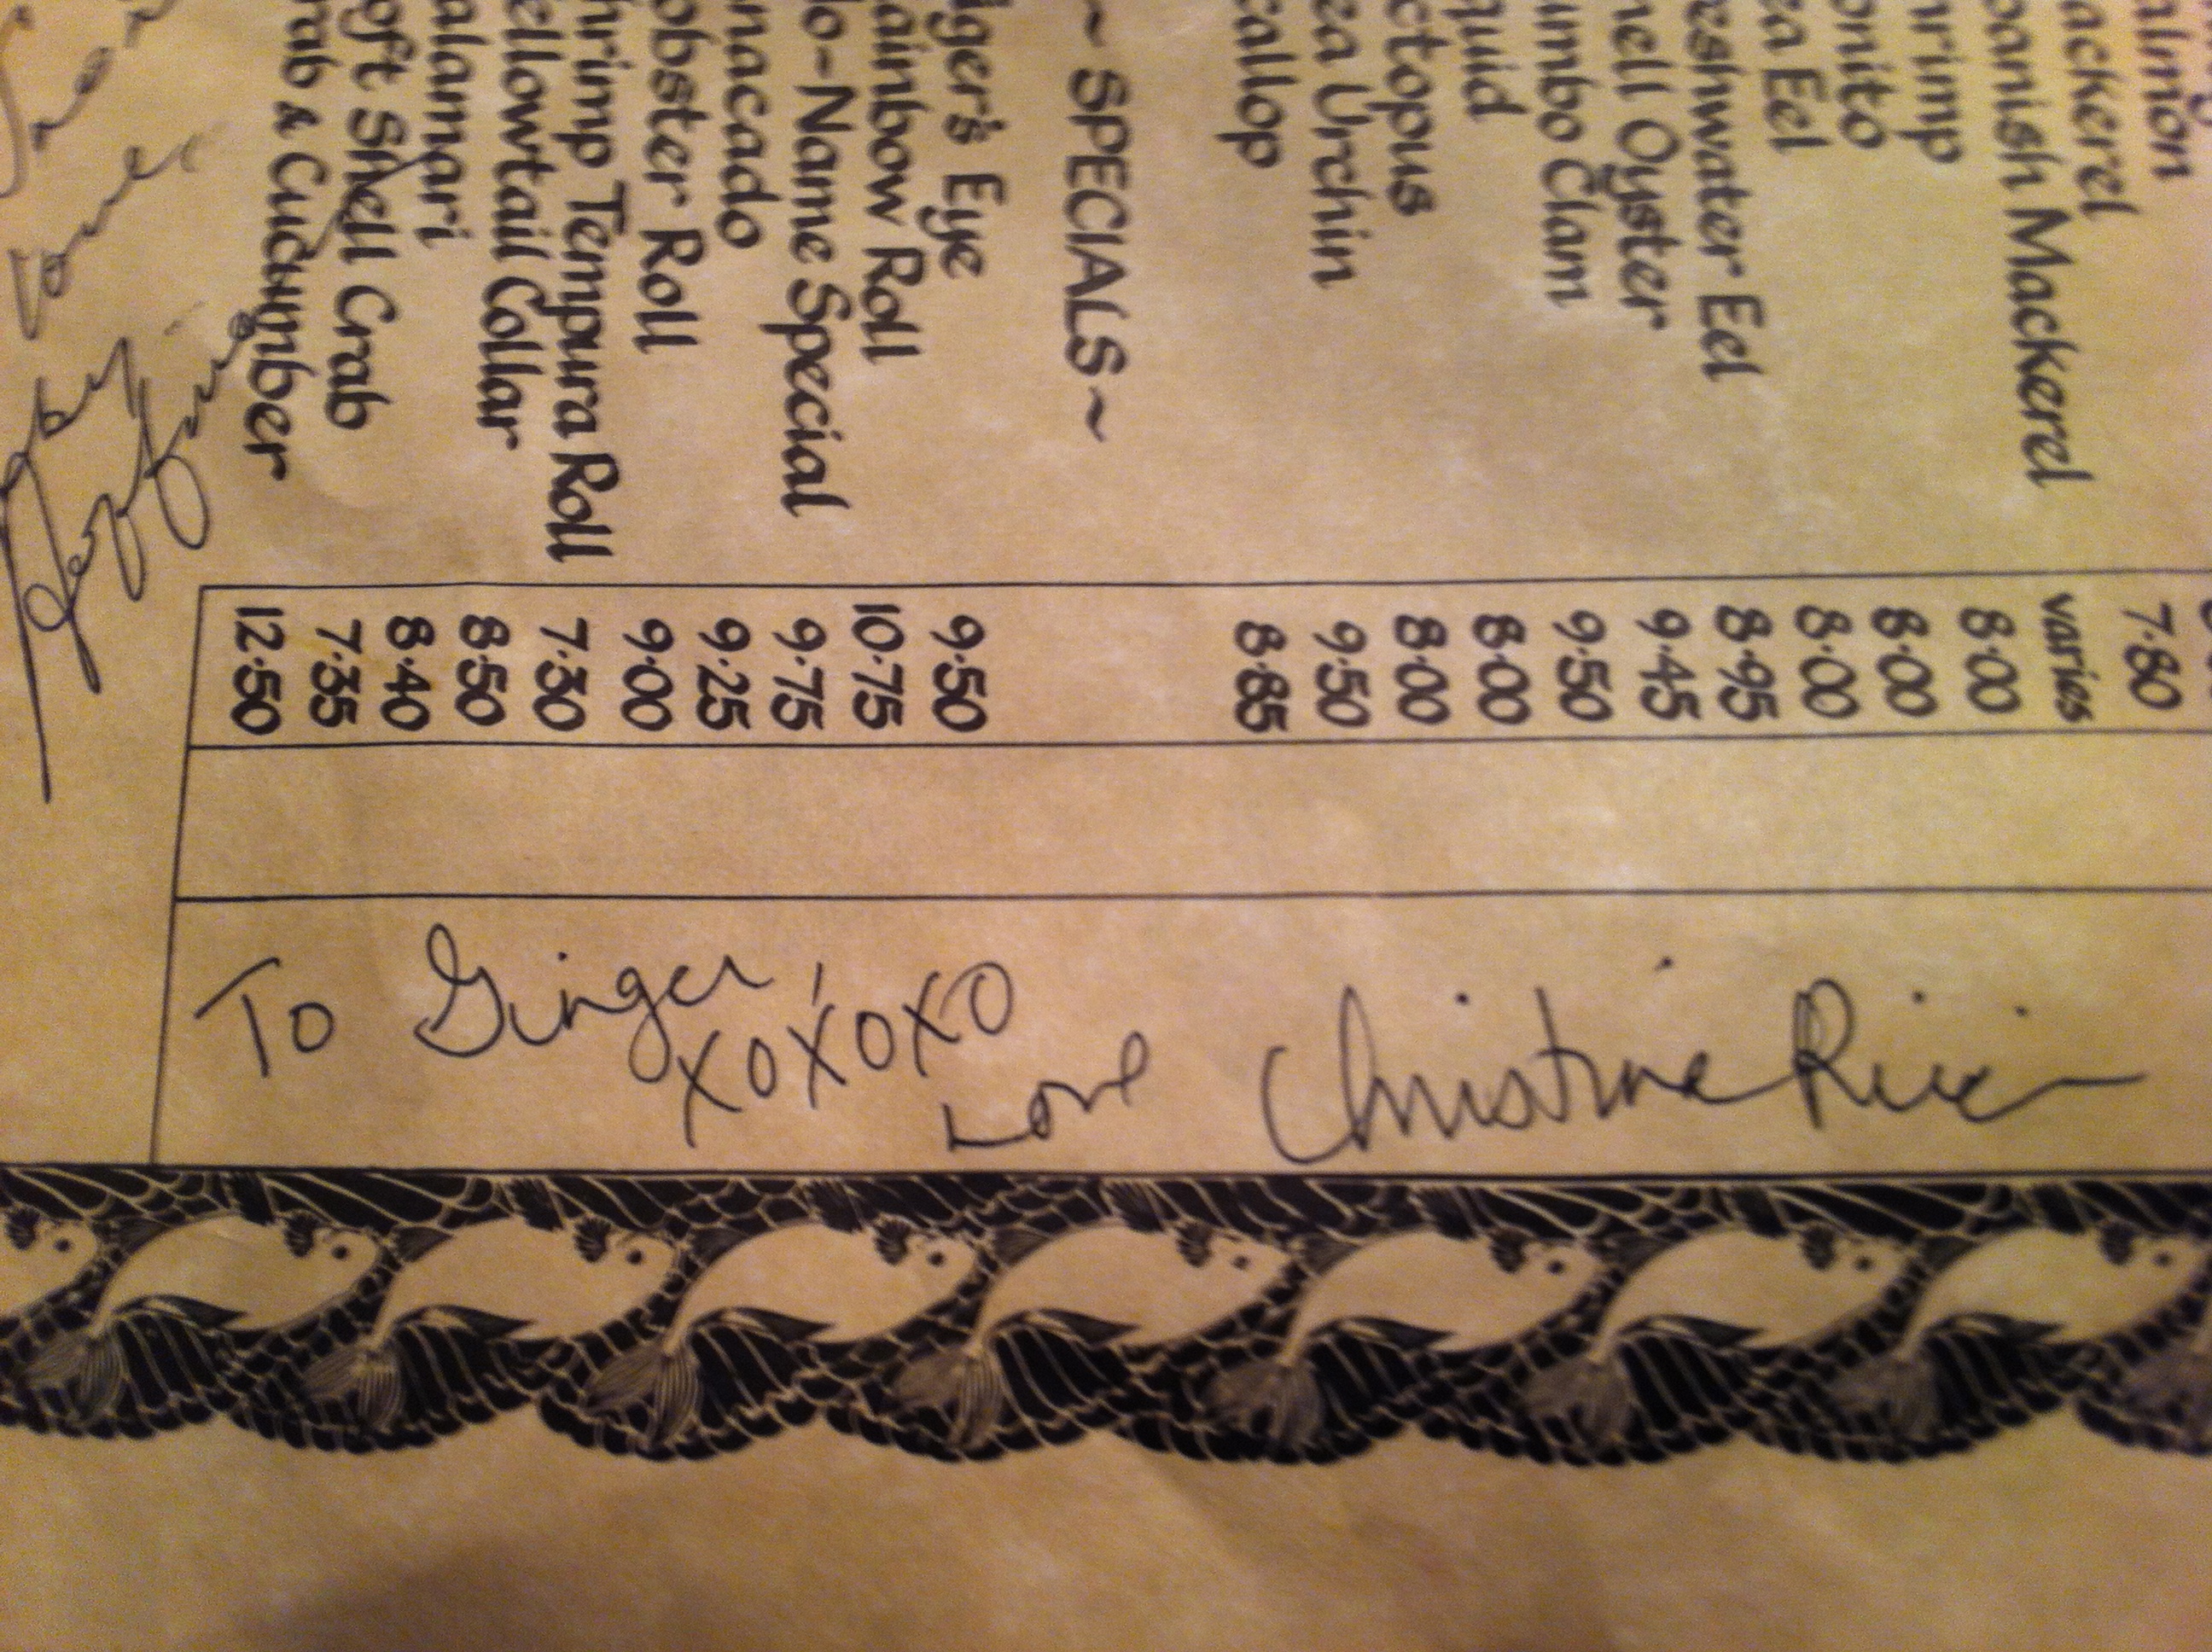 almon
ackerel 7.80
panish Mackerel varies
hrimp 8.00
onito 8.00
ea Eel 8.00
eshwater Eel 8.95
hell Oyster 9.45
umbo Clam 9.50
quid 8.00
ctopus 8.00
ea Urchin 9.50
callop 8.85
~ SPECIALS ~
iger's Eye 9.50
ainbow Roll 10.75
o-Name Special 9.75
nacado 9.25
obster Roll 9.00
hrimp Tempura Roll 7.30
ellowtail Collar 8.50
alamari 8.40
oft Shell Crab 7.35
rab & Cucumber 12.50
To Ginger,
XOXOXO
Love Christina Ricci